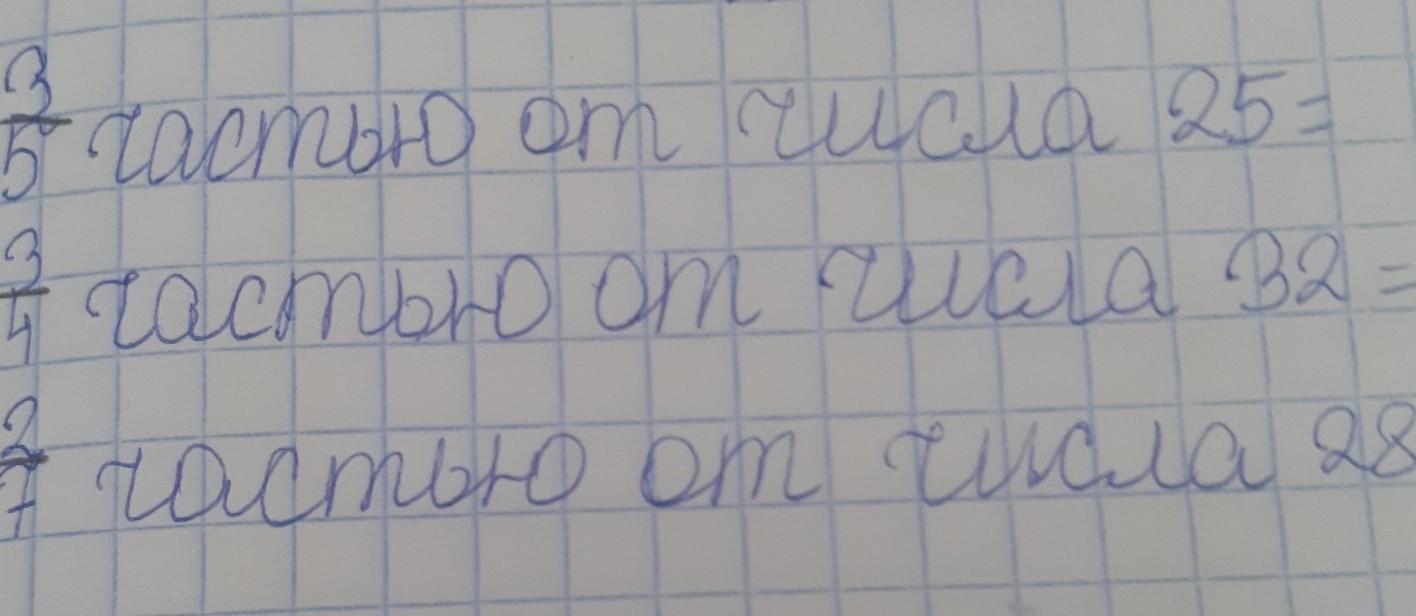 3/5 частью от числа 25=
3/4 частью от числа 32=
2/7 частью от числа 28